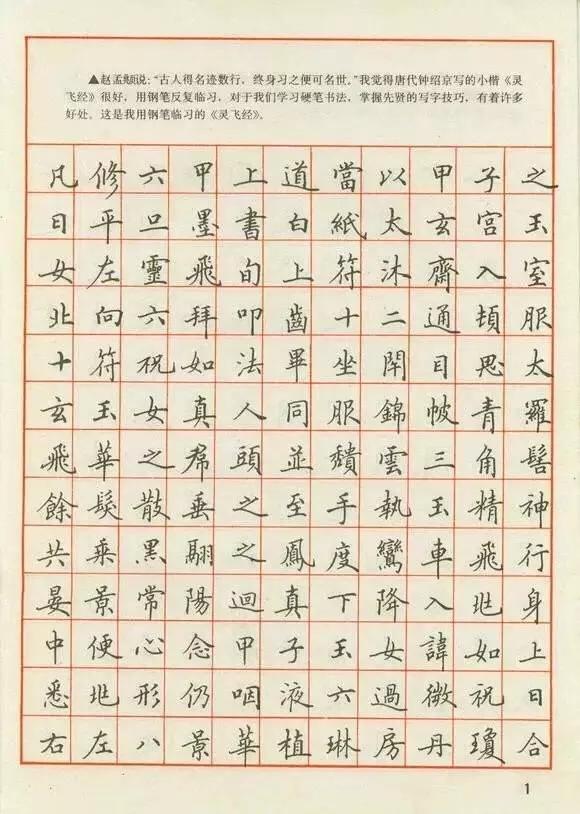 ▲赵孟頫说:“古人得名迹数行,终身习之便可名世。”我觉得唐代钟绍京写的小楷《灵
飞经》很好,用钢笔反复临习,对于我们学习硬笔书法,掌握先贤的写字技巧,有着许多
好处。这是我用钢笔临习的《灵飞经》。
凡修六甲上道當以甲子之
日平旦墨書白紙太玄宮玉
女左靈飛旬上符沐齋入室
北向六拜叩齒十二通頓服
十符祝如法畢坐閇目思太
玄玉女真人同服錦帔青羅
飛華之帬頭並穨雲三角髻
餘髮散垂之至手執玉精神
共乘黑翮之鳳度鸞車飛行
晏景常陽迴真下降入兆身
中便心念甲子玉女諱如上
悉兆形仍咽液六過微祝日
右左八景華植琳房丹瓊合
1